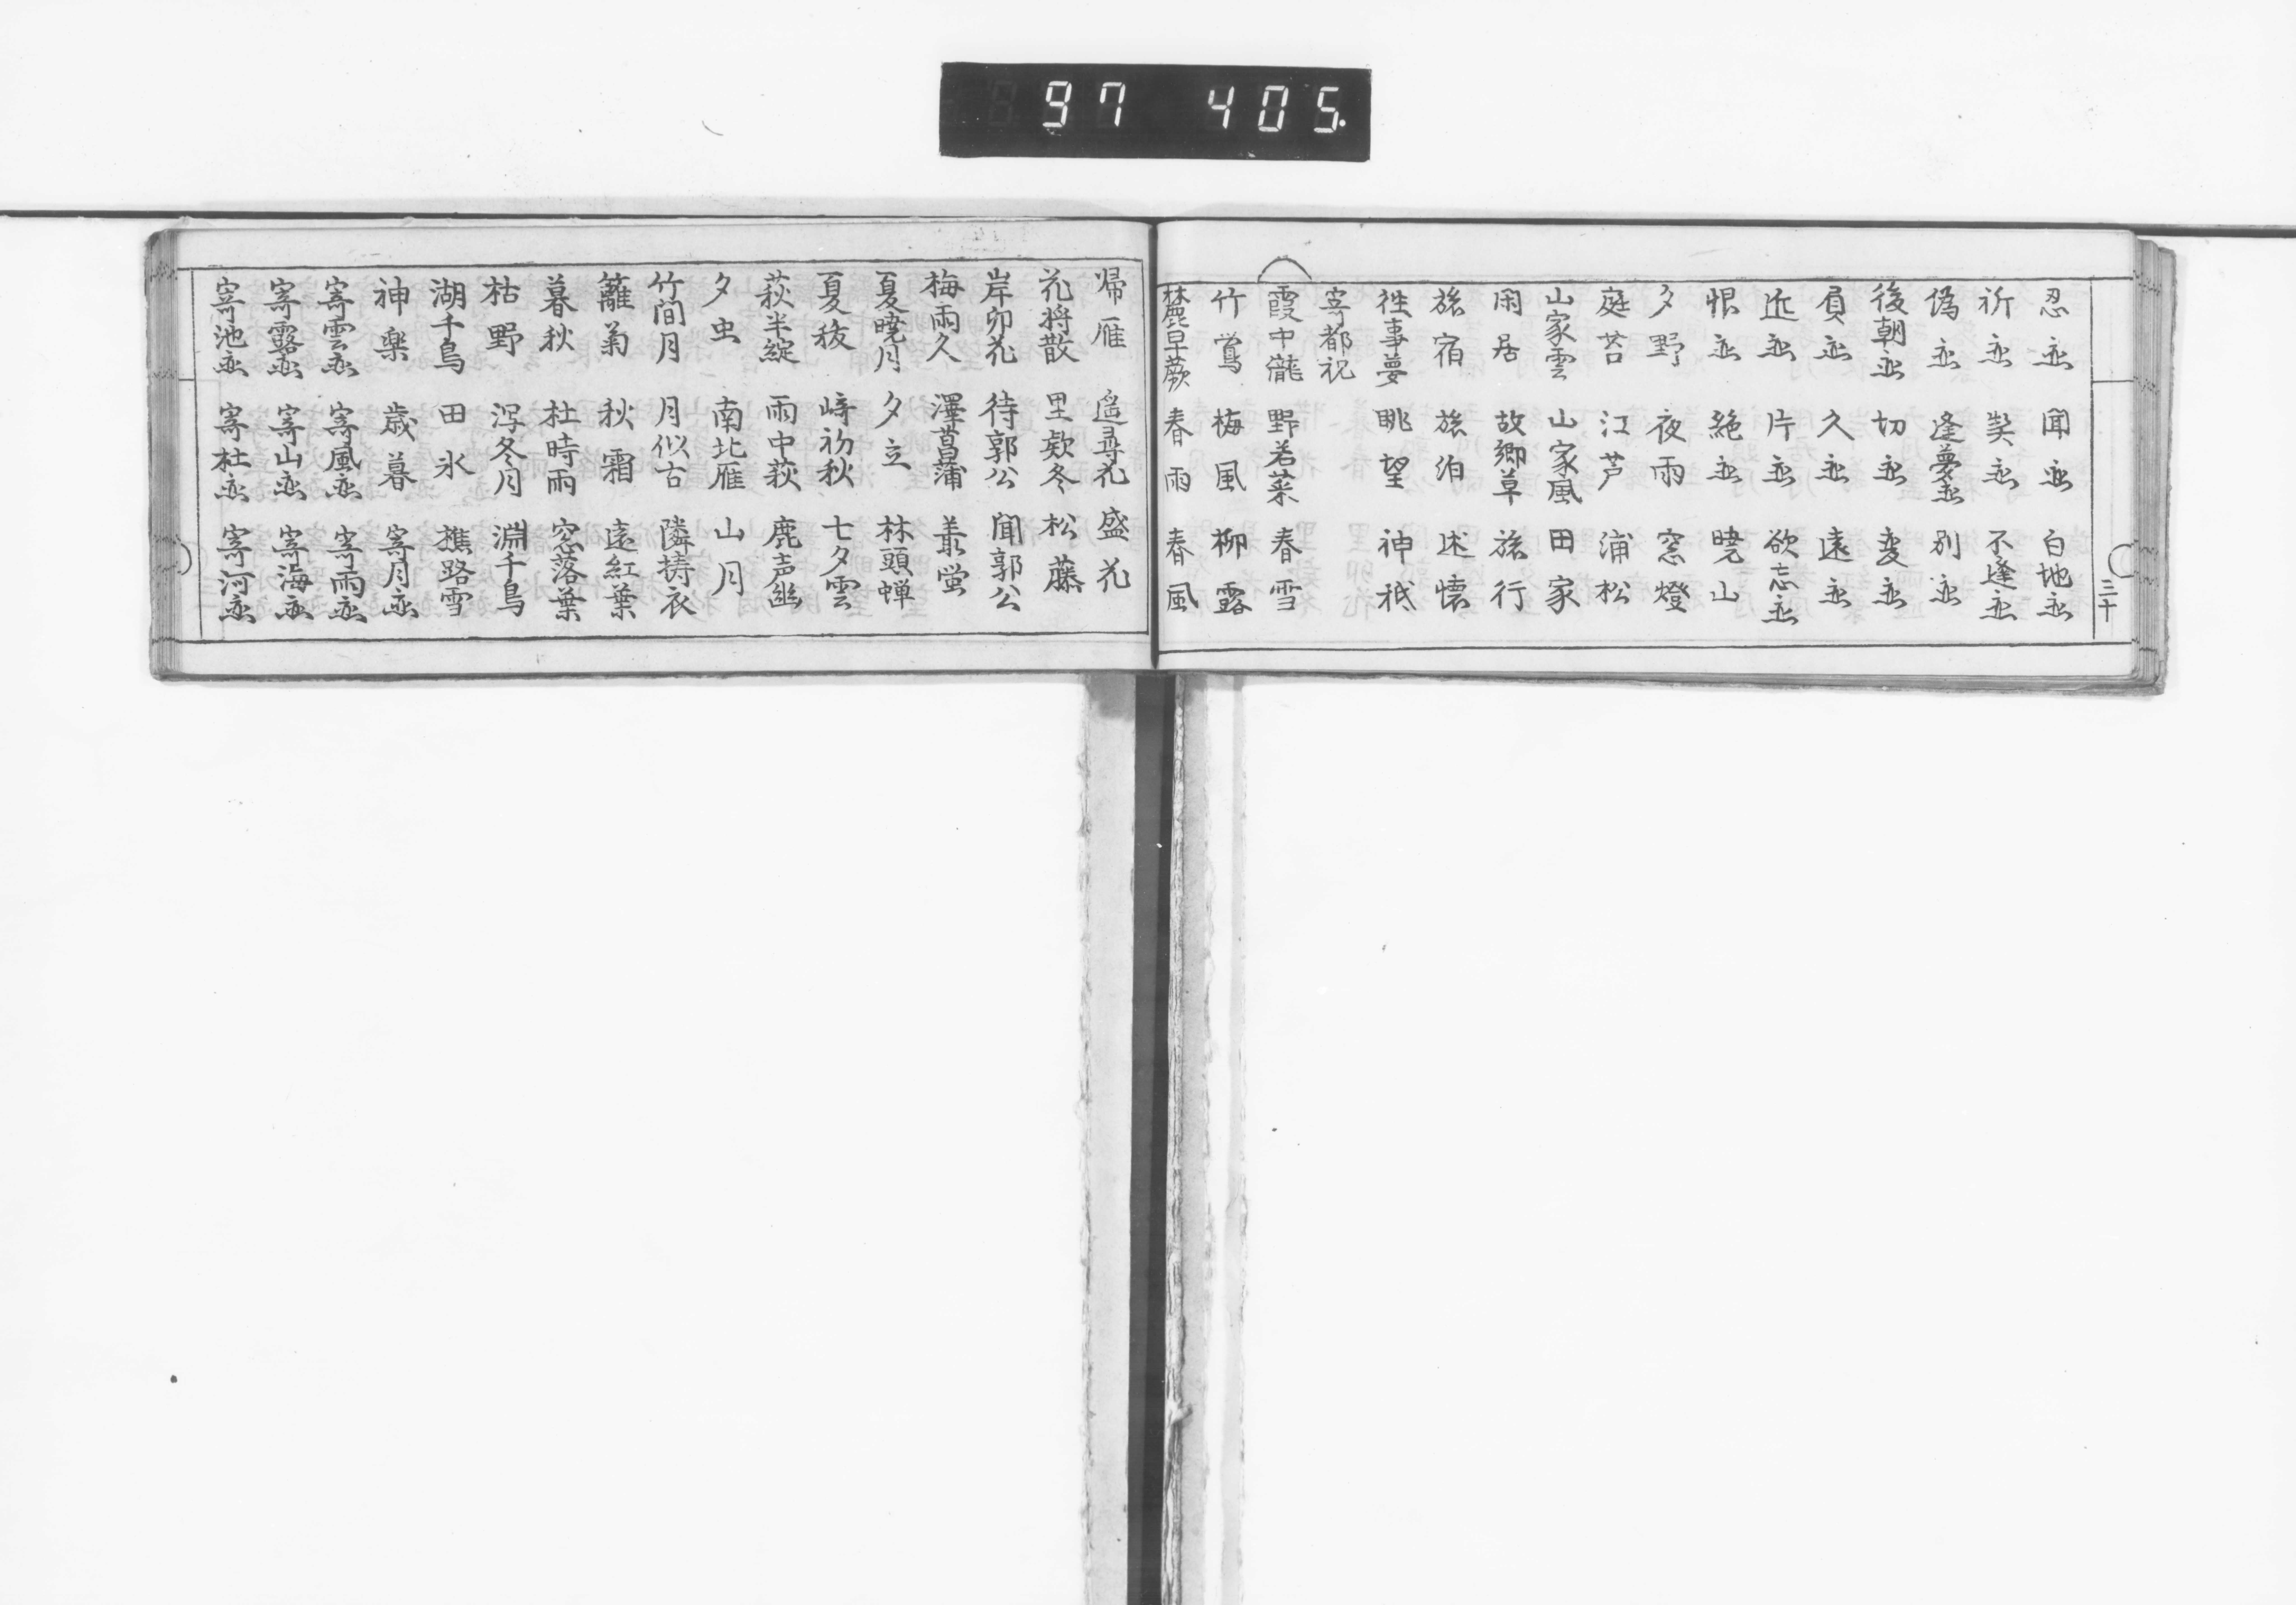 97 405.
三十
忍恋 聞恋 白地恋
祈恋 契恋 不逢恋
偽恋 逢夢恋 別恋
後朝恋 切恋 変恋
負恋 久恋 遠恋
近恋 片恋 欲忘恋
恨恋 絶恋 暁山
夕野 夜雨 窓燈
庭苔 江芦 浦松
山家雲 山家風 田家
閑居 故郷草 旅行
旅宿 旅泊 述懐
往事夢 眺望 神祇
寄都祝
霞中滝 野若菜 春雪
竹鶯 梅風 柳露
林麓早蕨 春雨 春風
帰雁 遥尋花 盛花
花将散 里欵冬 松藤
岸卯花 待郭公 聞郭公
梅雨久 澤菖蒲 叢蛍
夏暁月 夕立 林頭蝉
夏祓 崎初秋 七夕雲
萩半綻 雨中萩 鹿声幽
夕虫 南北雁 山月
竹間月 月似古 隣擣衣
籬菊 秋霜 遠紅葉
暮秋 杜時雨 窓落葉
枯野 冴冬月 淵千鳥
湖千鳥 田氷 樵路雪
神楽 歳暮 寄月恋
寄雲恋 寄風恋 寄雨恋
寄露恋 寄山恋 寄海恋
寄池恋 寄杜恋 寄河恋